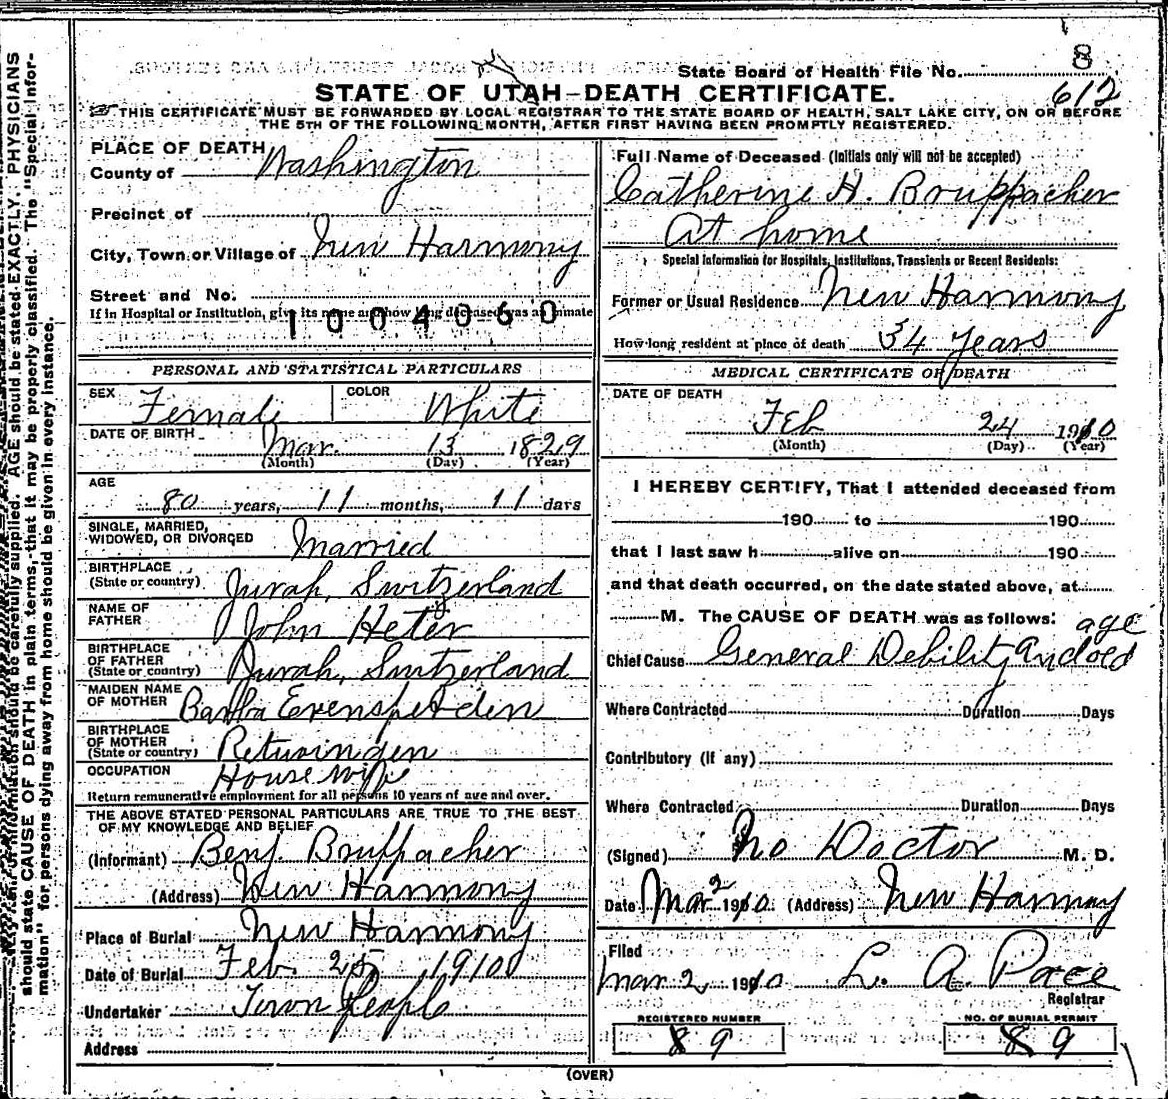 8
State Board of Health File No.
612
STATE OF UTAH–DEATH CERTIFICATE.
THIS CERTIFICATE MUST BE FORWARDED BY LOCAL REGISTRAR TO THE STATE BOARD OF HEALTH, SALT LAKE CITY, ON OR BEFORE
THE 5TH OF THE FOLLOWING MONTH, AFTER FIRST HAVING BEEN PROMPTLY REGISTERED.
PLACE OF DEATH
County of Washington
Precinct of
City, Town or Village of New Harmony
Street and No.
If in Hospital or Institution, give its name and how long deceased was an inmate
1004060
PERSONAL AND STATISTICAL PARTICULARS
SEX Female COLOR White
DATE OF BIRTH Mar. 13 1829
(Month) (Day) (Year)
AGE
80 years, 11 months, 11 days
SINGLE, MARRIED,
WIDOWED, OR DIVORCED Married
BIRTHPLACE
(State or country) Jurah, Switzerland
NAME OF
FATHER John Heter
BIRTHPLACE
OF FATHER
(State or country) Jurah, Switzerland
MAIDEN NAME
OF MOTHER
BIRTHPLACE
OF MOTHER
(State or country)
OCCUPATION House wife
Return remunerative employment for all persons 10 years of age and over.
THE ABOVE STATED PERSONAL PARTICULARS ARE TRUE TO THE BEST
OF MY KNOWLEDGE AND BELIEF
(Informant) Benj. Bruppacher
(Address) New Harmony
Place of Burial New Harmony
Date of Burial Feb 25, 1910
Undertaker Town People
Address
Full Name of Deceased (Initials only will not be accepted)
Catherine H. Bruppacher
At home
Special Information for Hospitals, Institutions, Transients or Recent Residents:
Former or Usual Residence New Harmony
How long resident at place of death 34 years
MEDICAL CERTIFICATE OF DEATH
DATE OF DEATH
Feb 24 1910
(Month) (Day) (Year)
I HEREBY CERTIFY, That I attended deceased from
190 to 190
that I last saw h alive on 190
and that death occurred, on the date stated above, at
M. The CAUSE OF DEATH was as follows:
age
Chief Cause General Debility and old
Where Contracted Duration Days
Contributory (if any)
Where Contracted Duration Days
(Signed) No Doctor M. D.
Date Mar 2 1910 (Address) New Harmony
Filed
Mar 2, 1910 L. A. Pace
Registrar
REGISTERED NUMBER NO. OF BURIAL PERMIT
89 89
(OVER)
should be carefully supplied. AGE should be stated EXACTLY. PHYSICIANS
should state CAUSE OF DEATH in plain terms, that it may be properly classified. The "Special Infor-
mation" for persons dying away from home should be given in every instance.